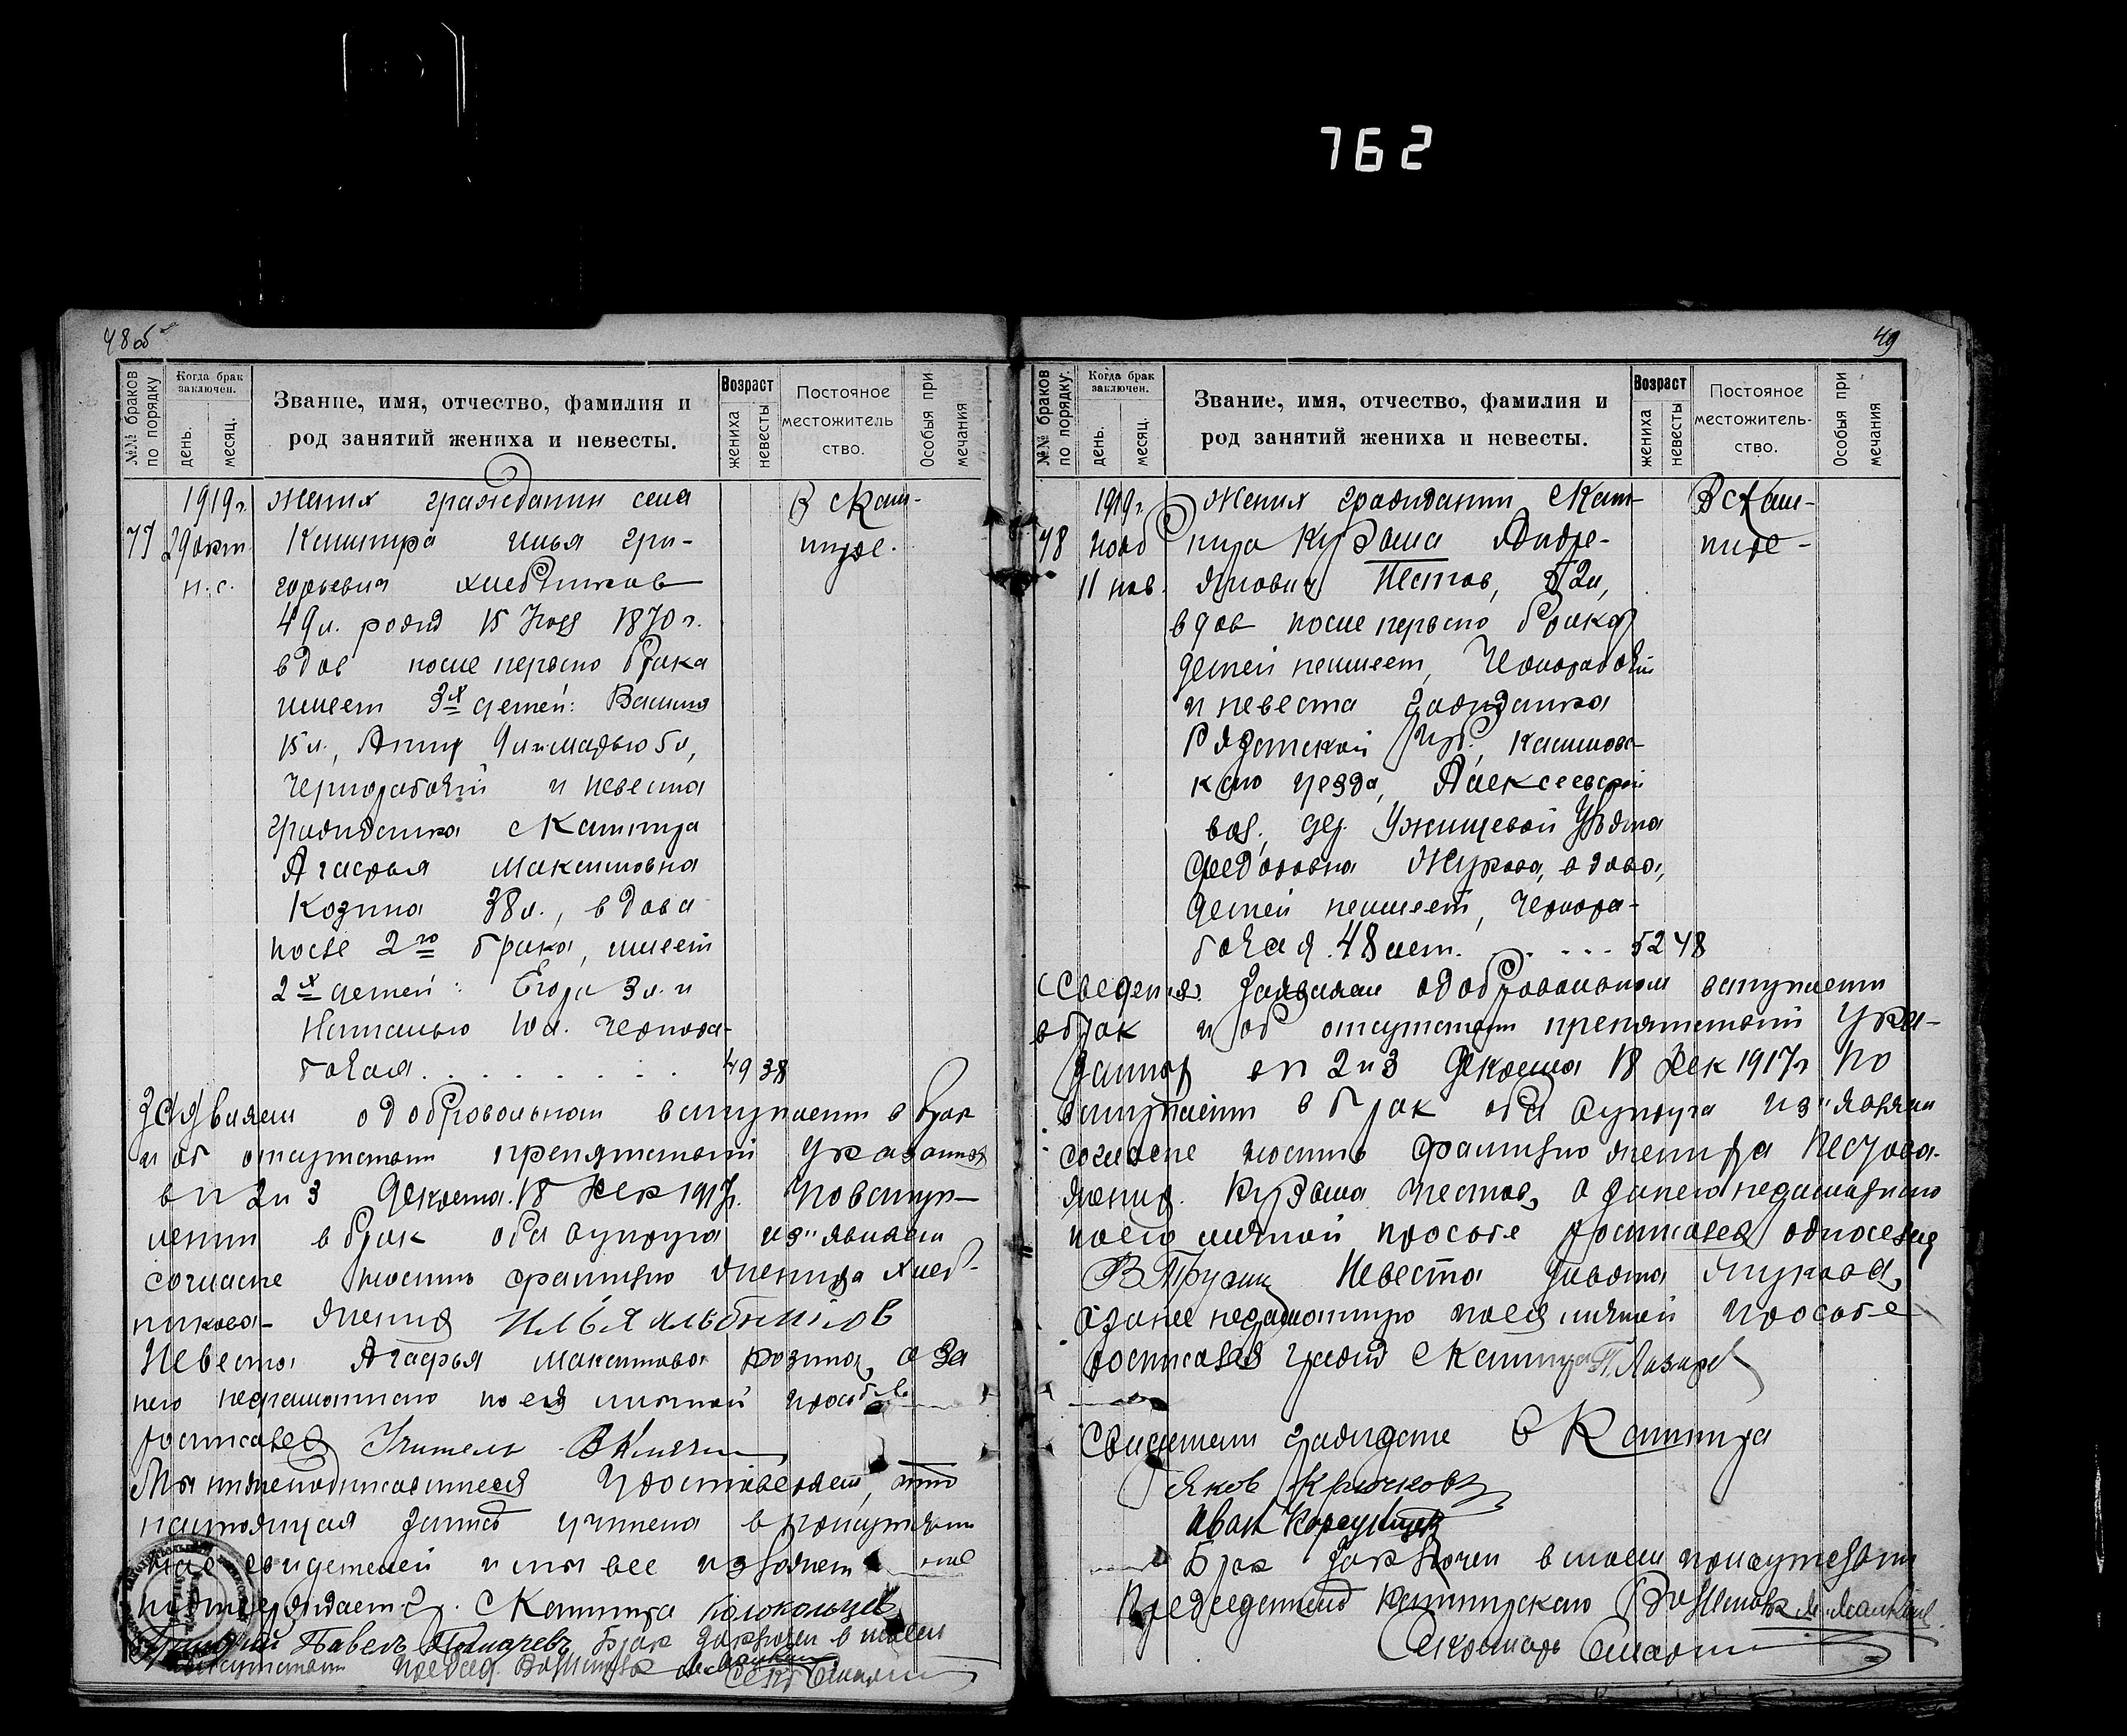 762
48 об
№№ браков по порядку
Когда брак заключен.
день.
месяц.
Звание, имя, отчество, фамилия и
род занятий жениха и невесты.
Возраст
жениха
невесты
Постояное
местожитель
ство.
Особыя при
мечания
1919г. Жених гражданин села В с Каш-
29 окт. Кашпира Илья Гри- пире.
н. с. горьевич Хлебников
49 л. рожд 15 1870 г.
вдов после первого брака
имеет 3х детей:
15 л., Анну 9 л и 5 л,
чернорабочий и невеста
гражданка с Кашпира
Агафья Максимовна
Козина 38 л., вдова
после 2го брака, имеет
2х детей: Егора 3 л. и
Наталью 10 л. чернора-
бочая . . . . . . . . 49 38
Заявляем о добровольном вступлении в брак
и об отсутствии препятствий указанных
в п 2 и 3 декрета 18 Дек 1917г. По вступ-
лении в брак оба супруга из"явили
согласие носить фамилию жениха Хлеб-
никова- Жених
Невеста Агафья Максимова Козина, а за
нею неграмотного по ея личной просьбе
росписался Учитель
Мы нижеподписавшиеся удостоверяем, что
настоящая запись учинена в присутствии
нас свидетелей и мы все
подтверждаем гр. с Кашпира Колокольцев
Григорий Павел Толмачев Брак заключен в моем
присутствии Председ.
Секр
49
№№ браков по порядку.
Когда брак заключен.
день.
месяц.
Звание, имя, отчество, фамилия и
род занятий жениха и невесты.
Возраст
жениха
невесты
Постояное
местожитель-
ство.
Особыя при
мечания
1919г. Жених гражданин с Каш- В с Каш-
48 нояб пира Кузьма Андре- пире-
11 нов. янович Пестов, 52 л,
вдов после первого брака
детей неимеет, Чернорабочий
и невеста гражданка
Рязанской губ., Касимов-
кого уезда, Алексеевской
вол. дер. Ужищевой Ульяна
Федоровна Жукова, вдова,
детей неимеет, Чернора-
бочая. 48 лет. . . . . 52 48
Сведения. Заявляем о добровольном вступлении
в брак и об отсутствии препятствий ука-
занных в п 2 и 3 Декрета 18 Дек 1917г По
вступлении в брак оба супруга из"явили
согласие носить фамилию жениха Пестова-
Жених. Кузьма Пестов, а за него неграмотного
по его личной просьбе росписался односелец
В Трухин Невеста Жукова,
а за нее неграмотную по ея личной просьбе
росписался гражд с Кашпира П. Лазарев
Свидетели граждане с Кашпира
Яков Крючков
Иван
Брак заключен в моем присутствии
Председатель Кашпирского
Секретарь